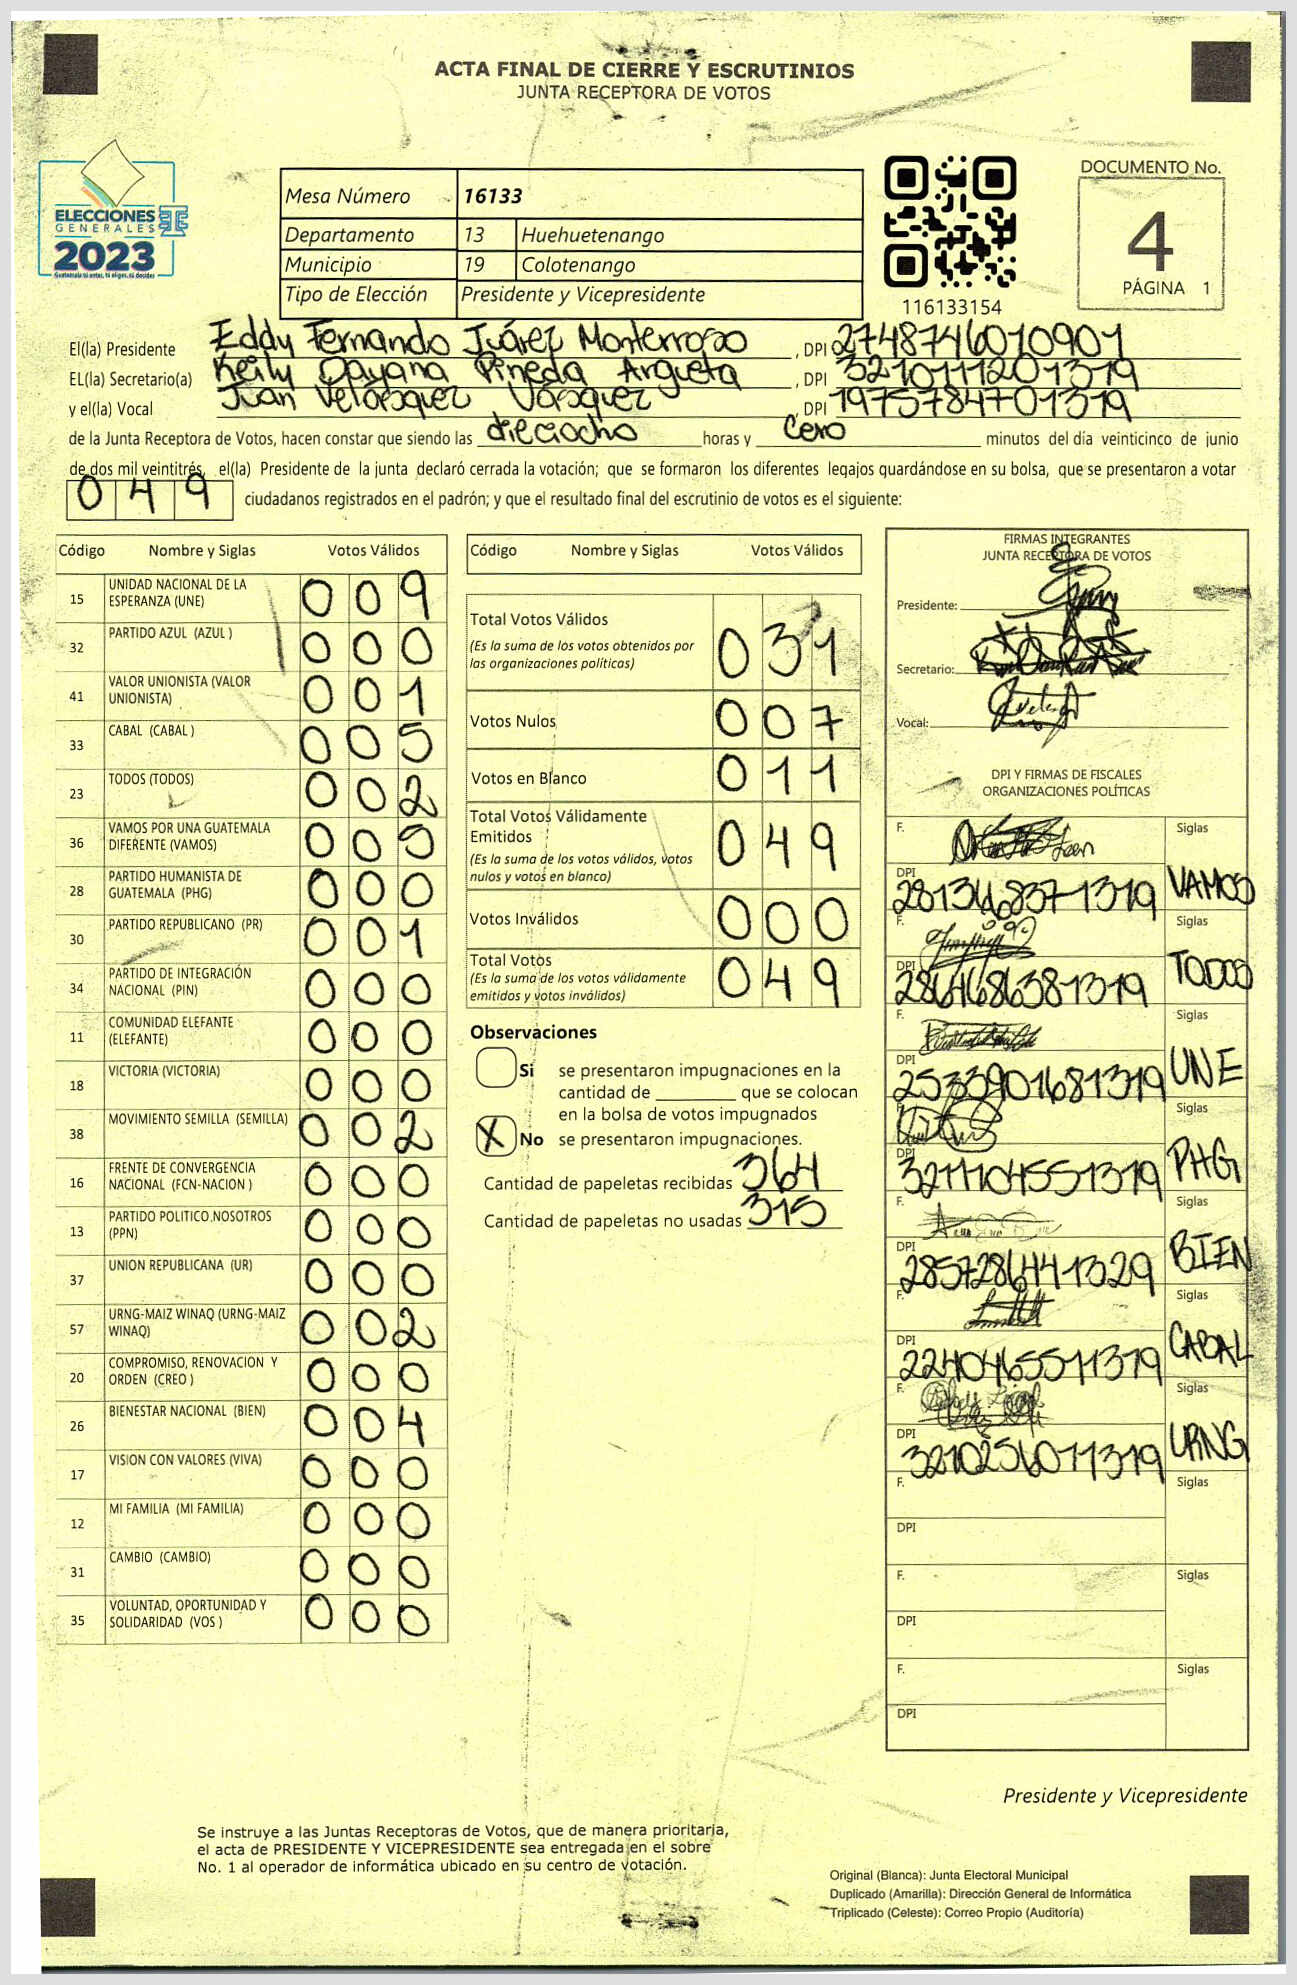 ACTA FINAL DE CIERRE Y ESCRUTINIOS
JUNTA RECEPTORA DE VOTOS
ELECCIONES
GENERALES
2023
Guatemala tú eres, tú eliges, tú decides
Mesa Número 16133
Departamento 13 Huehuetenango
Municipio 19 Colotenango
Tipo de Elección Presidente y Vicepresidente
116133154
DOCUMENTO No.
4
PÁGINA 1
El(la) Presidente Eddy Fernando Juárez Monterroso , DPI 2748746010901
EL(la) Secretario(a) Keily Dayana Pineda Argueta , DPI 3210111201319
y el(la) Vocal Juan Velásquez Vásquez , DPI 1975784701319
de la Junta Receptora de Votos, hacen constar que siendo las dieciocho horas y cero minutos del día veinticinco de junio
de dos mil veintitrés, el(la) Presidente de la junta declaró cerrada la votación; que se formaron los diferentes legajos guardándose en su bolsa, que se presentaron a votar
049 ciudadanos registrados en el padrón; y que el resultado final del escrutinio de votos es el siguiente:
Código Nombre y Siglas Votos Válidos
15 UNIDAD NACIONAL DE LA ESPERANZA (UNE) 009
32 PARTIDO AZUL (AZUL ) 000
41 VALOR UNIONISTA (VALOR UNIONISTA) 001
33 CABAL (CABAL ) 005
23 TODOS (TODOS) 002
36 VAMOS POR UNA GUATEMALA DIFERENTE (VAMOS) 005
28 PARTIDO HUMANISTA DE GUATEMALA (PHG) 000
30 PARTIDO REPUBLICANO (PR) 001
34 PARTIDO DE INTEGRACIÓN NACIONAL (PIN) 000
11 COMUNIDAD ELEFANTE (ELEFANTE) 000
18 VICTORIA (VICTORIA) 000
38 MOVIMIENTO SEMILLA (SEMILLA) 002
16 FRENTE DE CONVERGENCIA NACIONAL (FCN-NACION ) 000
13 PARTIDO POLITICO NOSOTROS (PPN) 000
37 UNION REPUBLICANA (UR) 000
57 URNG-MAIZ WINAQ (URNG-MAIZ WINAQ) 002
20 COMPROMISO, RENOVACION Y ORDEN (CREO ) 000
26 BIENESTAR NACIONAL (BIEN) 004
17 VISION CON VALORES (VIVA) 000
12 MI FAMILIA (MI FAMILIA) 000
31 CAMBIO (CAMBIO) 000
35 VOLUNTAD, OPORTUNIDAD Y SOLIDARIDAD (VOS ) 000
Código Nombre y Siglas Votos Válidos
Total Votos Válidos 031
(Es la suma de los votos obtenidos por
las organizaciones políticas)
Votos Nulos 007
Votos en Blanco 011
Total Votos Válidamente
Emitidos 049
(Es la suma de los votos válidos, votos
nulos y votos en blanco)
Votos Inválidos 000
Total Votos 049
(Es la suma de los votos válidamente
emitidos y votos inválidos)
Observaciones
Si se presentaron impugnaciones en la
cantidad de ________ que se colocan
en la bolsa de votos impugnados
X No se presentaron impugnaciones.
Cantidad de papeletas recibidas 364
Cantidad de papeletas no usadas 315
FIRMAS INTEGRANTES
JUNTA RECEPTORA DE VOTOS
Presidente:
Secretario:
Vocal:
DPI Y FIRMAS DE FISCALES
ORGANIZACIONES POLÍTICAS
F. Siglas
DPI VAMOS
F. Siglas
DPI 2864686381319 TODOS
F. Siglas
DPI 2533901681319 UNE
F. Siglas
DPI 3211104551319 PHG
F. Siglas
DPI 2857286441329 BIEN
F. Siglas
DPI 2240465511319 CABAL
F. Siglas
DPI 3210256011319 URNG
F. Siglas
DPI
F. Siglas
DPI
F. Siglas
DPI
Presidente y Vicepresidente
Se instruye a las Juntas Receptoras de Votos, que de manera prioritaria,
el acta de PRESIDENTE Y VICEPRESIDENTE sea entregada en el sobre
No. 1 al operador de informática ubicado en su centro de votación.
Original (Blanca): Junta Electoral Municipal
Duplicado (Amarilla): Dirección General de Informática
Triplicado (Celeste): Correo Propio (Auditoría)